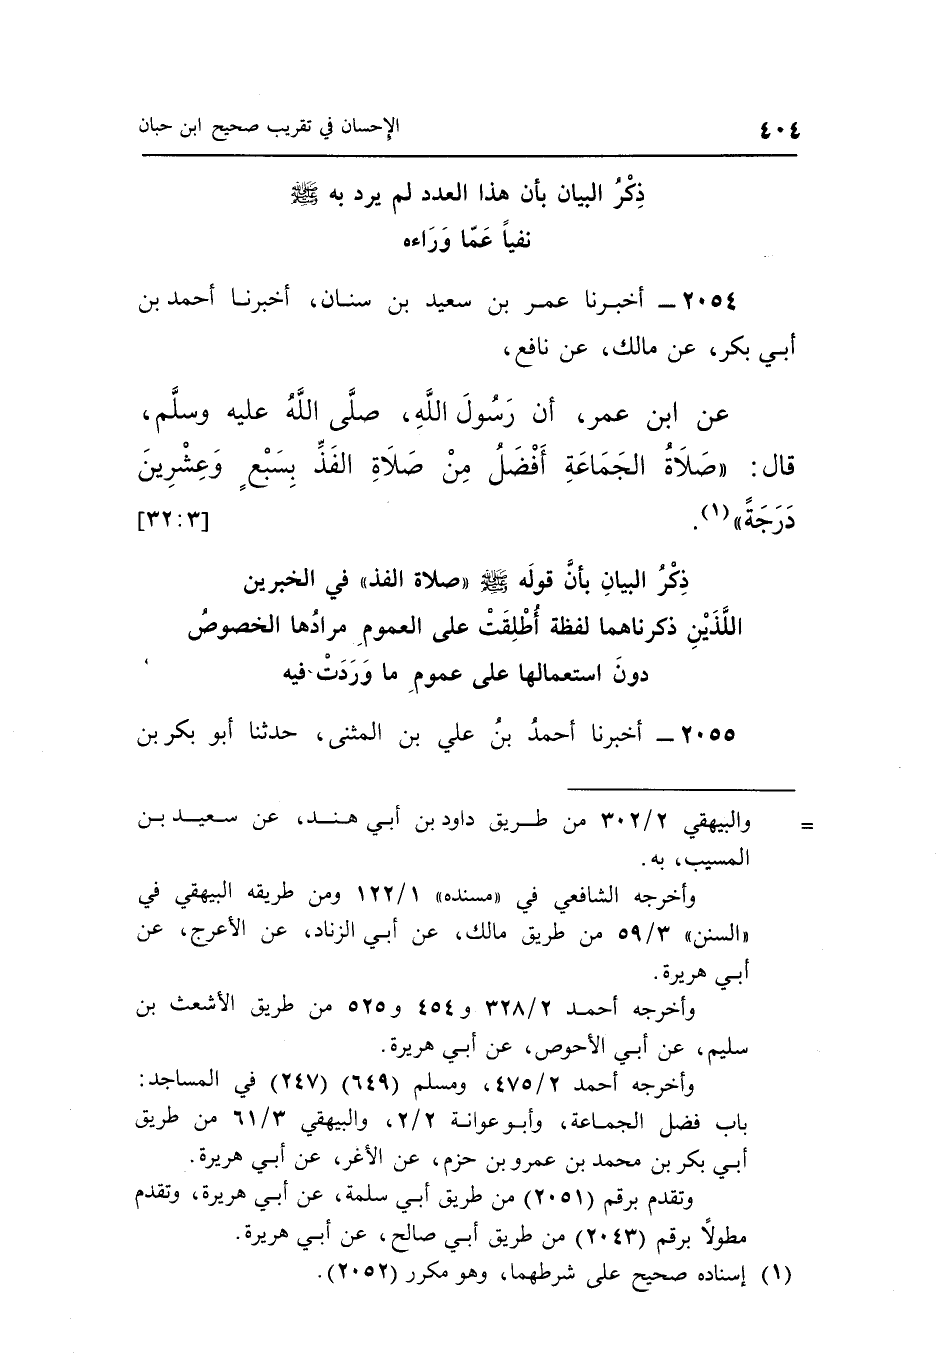 ٤٠٤ الإحسان في تقريب صحيح ابن حبان
ذِكْرُ البيان بأن هذا العدد لم يرد به ﷺ
نفياً عَمّا وَرَاءه
٢٠٥٤ ـ أخبرنا عمر بن سعيد بن سنان، أخبرنا أحمد بن
أبي بكر، عن مالك، عن نافع،
عن ابن عمر، أن رَسُولَ اللَّهِ، صلَّى اللَّهُ عليه وسلَّم،
قال: «صَلَاةُ الجَمَاعَةِ أَفْضَلُ مِنْ صَلَاةِ الفَذِّ بِسَبْعٍ وَعِشْرِينَ
دَرَجَةً»(١). [٣٢:٣]
ذِكْرُ البيانِ بأنَّ قولَه ﷺ «صلاة الفذ» في الخبرين
اللَّذَيْنِ ذكرناهما لفظة أُطْلِقَتْ على العمومِ مرادُها الخصوصُ
دونَ استعمالها على عمومِ ما وَرَدَتْ فيه
٢٠٥٥ ـ أخبرنا أحمدُ بنُ علي بن المثنى، حدثنا أبو بكر بن
= والبيهقي ٣٠٢/٢ من طريق داود بن أبي هند، عن سعيد بن
المسيب، به.
وأخرجه الشافعي في «مسنده» ١٢٢/١ ومن طريقه البيهقي في
«السنن» ٥٩/٣ من طريق مالك، عن أبي الزناد، عن الأعرج، عن
أبي هريرة.
وأخرجه أحمد ٣٢٨/٢ و٤٥٤ و٥٢٥ من طريق الأشعث بن
سليم، عن أبي الأحوص، عن أبي هريرة.
وأخرجه أحمد ٤٧٥/٢، ومسلم (٦٤٩) (٢٤٧) في المساجد:
باب فضل الجماعة، وأبو عوانة ٢/٢، والبيهقي ٦١/٣ من طريق
أبي بكر بن محمد بن عمرو بن حزم، عن الأغر، عن أبي هريرة.
وتقدم برقم (٢٠٥١) من طريق أبي سلمة، عن أبي هريرة، وتقدم
مطولاً برقم (٢٠٤٣) من طريق أبي صالح، عن أبي هريرة.
(١) إسناده صحيح على شرطهما، وهو مكرر (٢٠٥٢).